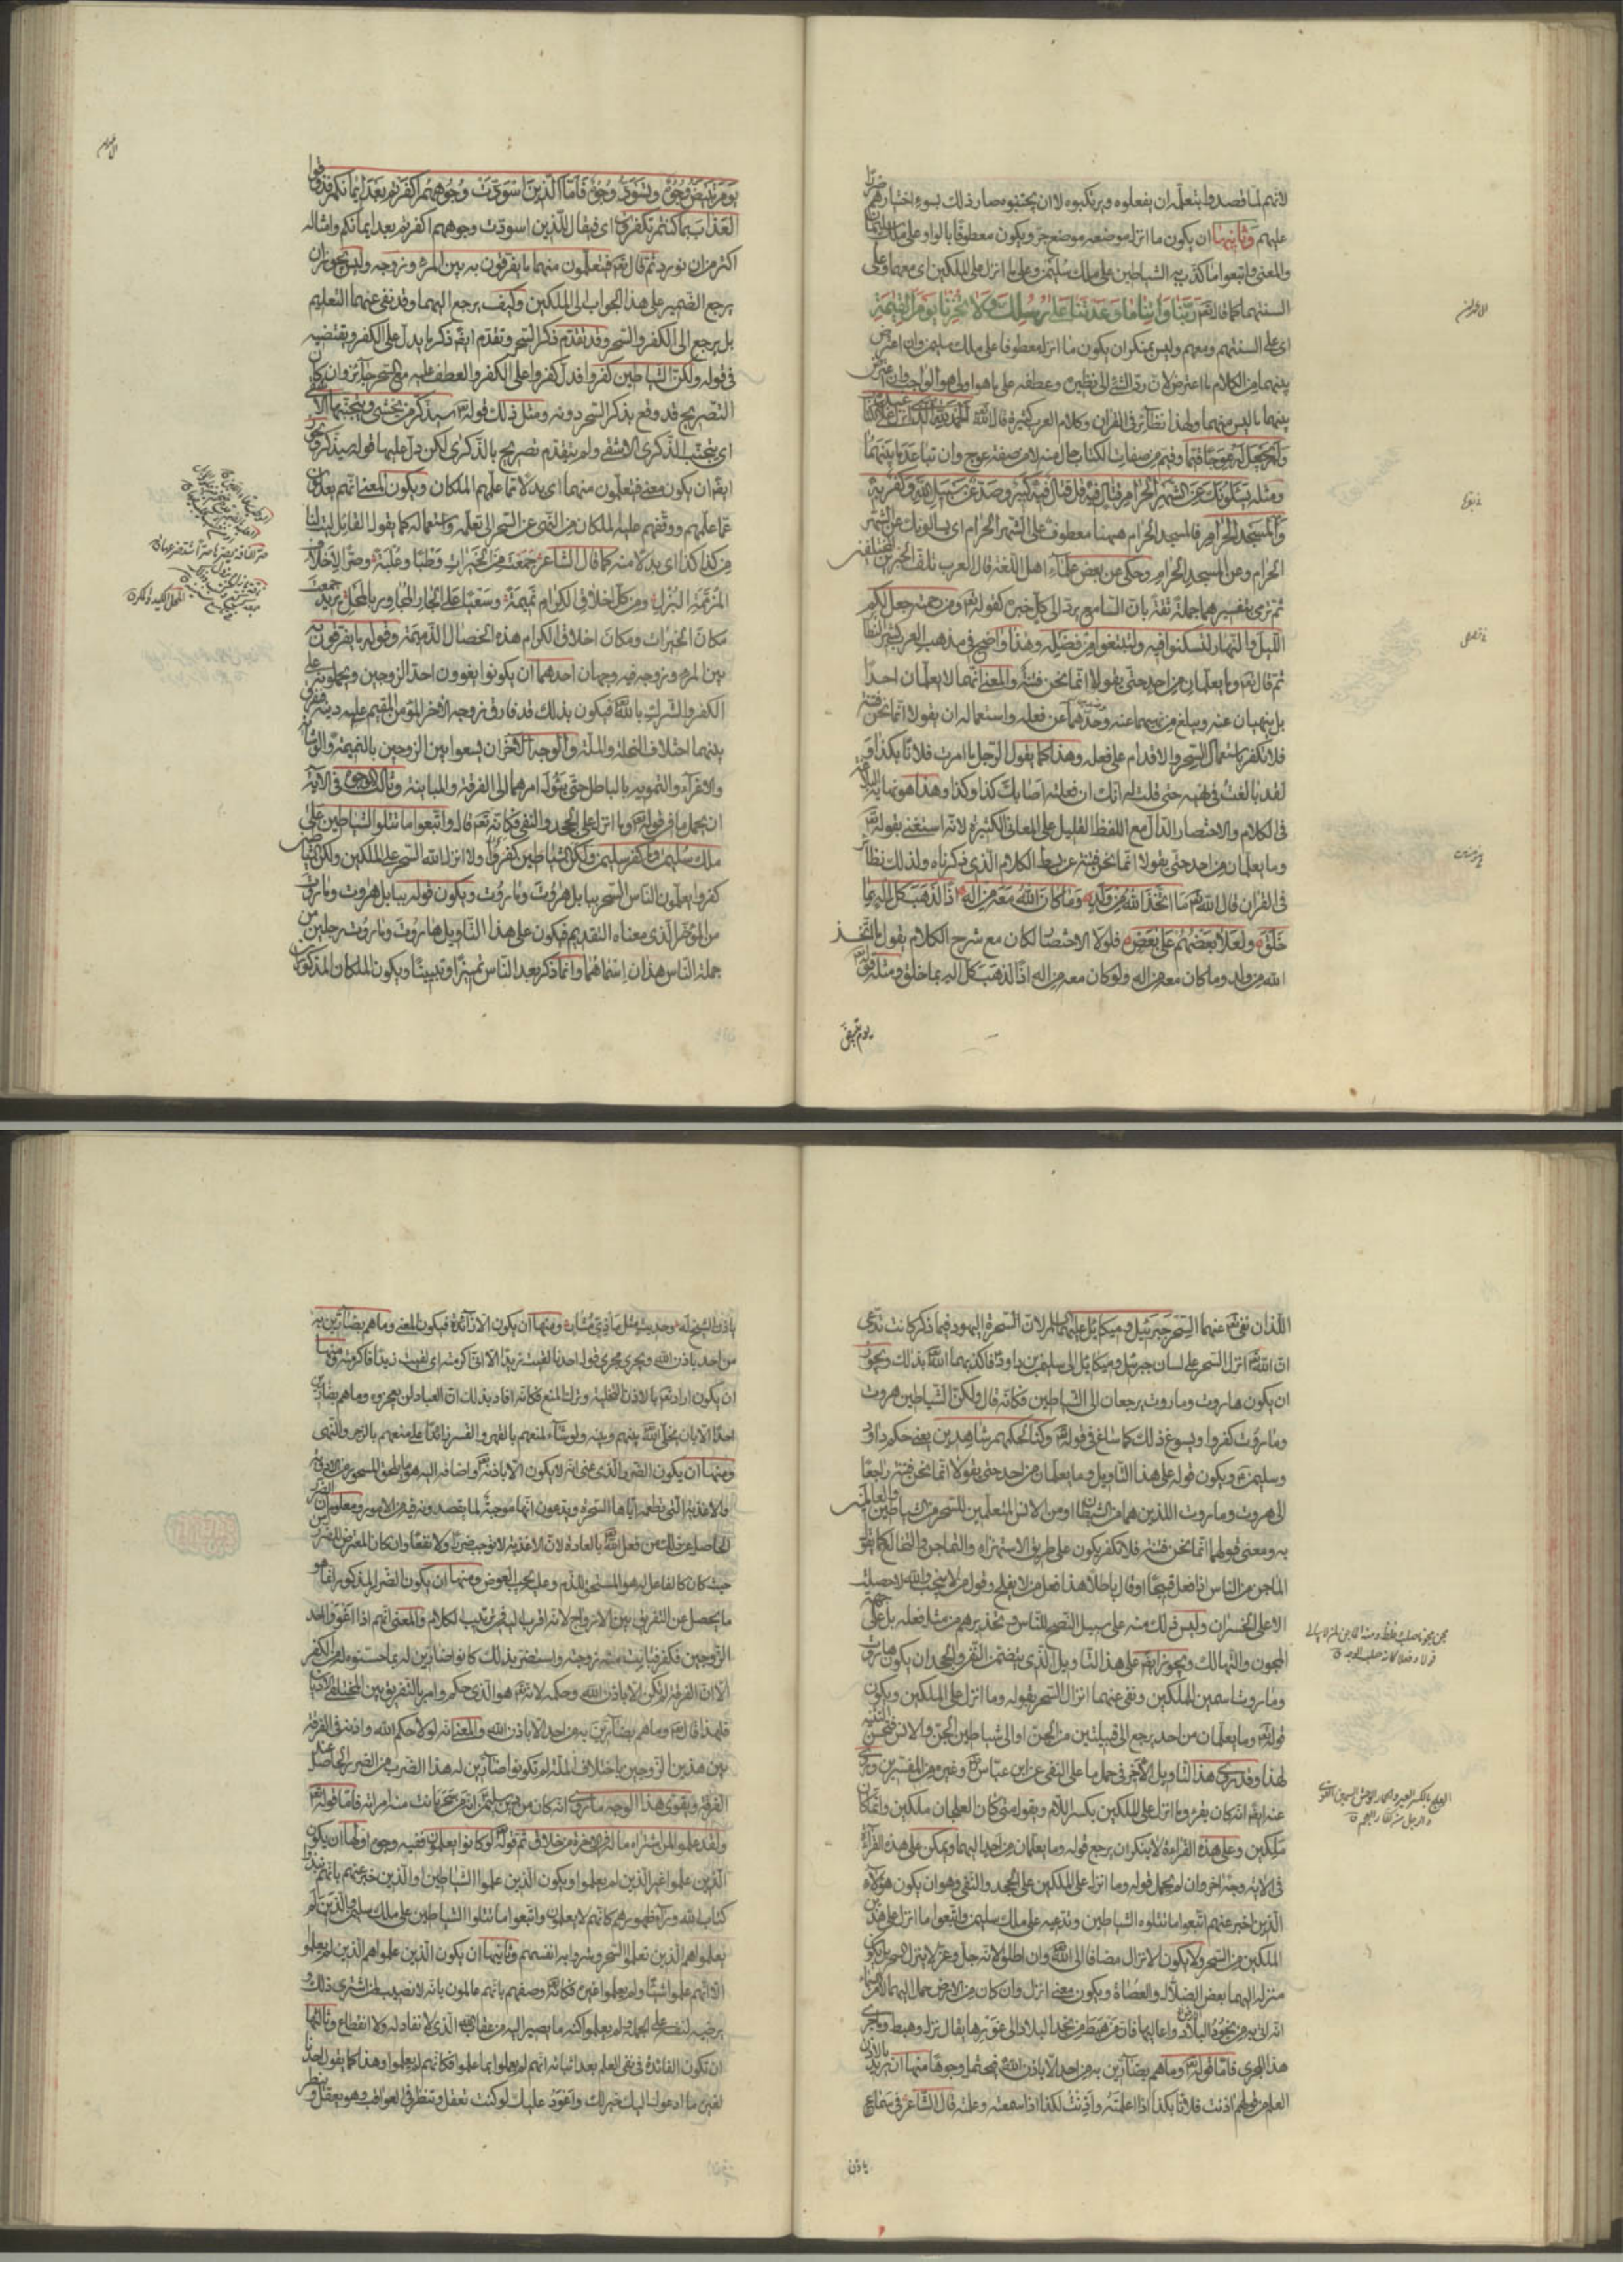 لانهم لما قصدوا بتعلمه ان يفعلوه ويرتكبوه لا ان يجتنبوه صار ذلك بسوء اختيارهم ضررا
عليهم وثانيها ان يكون ما انزل موضعه موضع جر ويكون معطوفا بالواو على ملك سليمان
والمعنى واتبعوا ما كذب به الشياطين على ملك سليمن وعلى ما انزل على الملكين اى معهما وعلى
السنتهما كما قال تعم رَبَّنَا وَآتِنَا مَا وَعَدْتَنَا عَلَى رُسُلِكَ وَلَا تُخْزِنَا يَوْمَ الْقِيٰمَةِ
اى على السنتهم ومعهم وليس بمنكر ان يكون ما انزل معطوفا على ملك سليمن وان اعترض
بينهما من الكلام ما اعترض لان رد الشئ الى نظيره وعطفه على ما هو اولى هو الواجب وان اعترض
بينهما ما ليس منهما ولهذا نظائر فى القران وكلام العرب كثيرة قال الله الحمد لله الذى انزل على عبده الكتاب
ولم يجعل له عوجا قيما وقيم من صفات الكتاب حال منه لا من صفة عوج وان تباعد ما بينهما
ومثله يسئلونك عن الشهر الحرام قتال فيه قل قتال فيه كبير وصد عن سبيل الله وكفر به
والمسجد الحرام فالمسجد الحرام ههنا معطوف على الشهر الحرام اى يسالونك عن الشهر
الحرام وعن المسجد الحرام وحكى عن بعض علماء اهل اللغة قال العرب تلف الخبرين المختلفين
ثم ترمى بتفسيرهما جملة ثقة بان السامع يرد الى كل خبره كقوله ومن رحمته جعل لكم
الليل والنهار لتسكنوا فيه ولتبتغوا من فضله وهذا واضح فى مذهب العرب كثير النظائر
ثم قال تعم وما يعلمان من احد حتى يقولا انما نحن فتنة والمعنى انهما لا يعلمان احدا
بل ينهيان عنه ويبلغ من نهيهما عنه وصدهما عن فعله واستعماله ان يقولا انما نحن فتنة
فلا تكفر باستعمال السحر والاقدام على فعله وهذا كما يقول الرجل ما امرت فلانا بكذا و
لقد بالغت فى نهيه حتى قلت له انك ان فعلته اصابك كذا وكذا وهذا هو نهاية البلاغة
فى الكلام والاختصار الدال مع اللفظ القليل على المعانى الكثيرة لانه استغنى بقوله
وما يعلمان من احد حتى يقولا انما نحن فتنة عن بسط الكلام الذى ذكرناه ولذلك نظائر
فى القران قال الله ما اتخذ الله من ولد وما كان معه من اله اذا لذهب كل اله بما
خلق ولعلا بعضهم على بعض فلولا الاختصار لكان مع شرح الكلام يقول ما اتخذ
الله من ولد وما كان معه من اله ولو كان معه من اله اذا لذهب كل اله بما خلق ومثله قوله
يوم تبيض
يوم تبيض وجوه وتسود وجوه فاما الذين اسودت وجوههم اكفرتم بعد ايمانكم فذوقوا
العذاب بما كنتم تكفرون اى فيقال للذين اسودت وجوههم اكفرتم بعد ايمانكم وامثاله
اكثر من ان نورد ثم قال تعم فيتعلمون منهما ما يفرقون به بين المرء وزوجه وليس يجوز ان
يرجع الضمير على هذا الجواب الى الملكين وكيف يرجع اليهما وقد نفى عنهما التعليم
بل يرجع الى الكفر والسحر وقد تقدم ذكر السحر وتقدم ايضا ذكر ما يدل على الكفر ويقتضيه
فى قوله ولكن الشياطين كفروا فدل كفروا على الكفر والعطف عليه مع السحر جائز وان كان
التصريح قد وقع بذكر السحر دونه ومثل ذلك قوله سيذكر من يخشى ويتجنبها الاشقى
اى يتجنب الذكرى الاشقى ولم يتقدم تصريح بالذكرى لكن دل عليها قوله سيذكر ويجوز
ايضا ان يكون معنى فيتعلمون منهما اى بدلا مما علمهم الملكان ويكون المعنى انهم يعدلون
عما علمهم ووقفهم عليه الملكان من النهى عن السحر الى تعلمه واستعماله كما يقول القائل ليت لنا
من كذا كذا اى بدلا منه كما قال الشاعر جمعت من الخيرات وطبا وعلبة وصرا لاخلاف
المزممة البزل ومن كل اخلاق الكرام نميمة وسعيا على الجار المجاور بالمحل يريد جمعت
مكان الخيرات ومكان اخلاق الكرام هذه الخصال الذميمة وقوله ما يفرقون به
بين المرء وزوجه فيه وجهان احدهما ان يكونوا يغوون احد الزوجين ويحملونه على
الكفر والشرك بالله فيكون بذلك قد فارق زوجه الاخر المؤمن المقيم على دينه فيفرق
بينهما اختلاف النحلة والملة والوجه الاخر ان يسعوا بين الزوجين بالنميمة والوشاية
والاغراء والتمويه بالباطل حتى يئول امرهما الى الفرقة والمباينة وثالث الوجوه فى الاية
ان يحمل ما فى قوله وما انزل على الجحد والنفى فكانه تعم قال واتبعوا ما تتلوا الشياطين على
ملك سليمن وما كفر سليمن ولكن الشياطين كفروا ولا انزل الله السحر على الملكين ولكن الشياطين
كفروا يعلمون الناس السحر ببابل هروت وماروت ويكون قوله ببابل هروت وماروت
من المؤخر الذى معناه التقديم فيكون على هذا التاويل هاروت وماروت رجلين من
جملة الناس هذان اسماهما وانما ذكر بعد الناس تمييزا وتبيينا ويكون الملكان المذكوران
اللذان نفى عنهما السحر جبرئيل وميكائيل عليهما السلام لان السحرة اليهود فيما ذكر كانت تدعى
ان الله انزل السحر على لسان جبرئيل وميكائيل الى سليمن بن داود فاكذبهما الله بذلك ويجوز
ان يكون هاروت وماروت يرجعان الى الشياطين فكانه قال ولكن الشياطين هروت
وماروت كفروا ويسوغ ذلك كما ساغ فى قوله وكنا لحكمهم شاهدين يعنى حكم داود
وسليمن ويكون قوله على هذا التاويل وما يعلمان من احد حتى يقولا انما نحن فتنة راجعا
الى هروت وماروت اللذين هما من الشياطين او من الانس المتعلمين للسحر من الشياطين والعاملين
به ومعنى قولهما انما نحن فتنة فلا تكفر يكون على طريق الاستهزاء والتماجن والتخالع كما يقول
الماجن من الناس اذا فعل قبيحا او قال باطلا هذا فعل من لا يفلح وقول من لا ينجب والله لا حصلت
الا على الخسران وليس ذلك منه على سبيل النصح للناس وتحذيرهم من مثل فعله بل على جهة
المجون والتهالك ويجوز ايضا على هذا التاويل الذى يتضمن النفى والجحد ان يكون هاروت
وماروت اسمين للملكين ونفى عنهما انزال السحر بقوله وما انزل على الملكين ويكون
قوله وما يعلمان من احد يرجع الى قبيلتين من الجن او الى شياطين الجن والانس فتحسن التثنية
لهذا وقد روى هذا التاويل الاخر فى حمل ما على النفى عن ابن عباس وغيره من المفسرين وروى
عنه ايضا انه كان يقرء وما انزل على الملكين بكسر اللام ويقول متى كان العلجان ملكين وانما كانا
ملكين وعلى هذه القراءة لا ينكر ان يرجع قوله وما يعلمان من احد اليهما ويمكن على هذه القرآءة
فى الاية وجه اخر وان لم يحمل قوله وما انزل على الملكين على الجحد والنفى وهو ان يكون هؤلاء
الذين اخبر عنهم اتبعوا ما تتلوه الشياطين وتدعيه على ملك سليمن واتبعوا ما انزل على هذين
الملكين من السحر ولا يكون الانزال مضافا الى الله وان اطلق لانه جل وعز لا ينزل السحر بل يكون
منزله اليهما بعض الضلال والعصاة ويكون معنى انزل وان كان من الارض حمل اليهما لا من السماء
انه اتى به من نجود البلاد واعاليها فان من هبط من نجد البلاد الى غورها يقال نزل وهبط وما جرى
هذا المجرى فاما قوله وما هم بضارين به من احد الا باذن الله فيحتمل وجوها منها ان يريد بالاذن
العلم من قولهم اذنت فلانا بكذا اذا اعلمته واذنت لكذا اذا سمعته وعلمته قال الشاعر فى سماع
ياذن
ياذن الشيخ له وحديث مثل ماذى مشار ومنها ان يكون الا زائدة فيكون المعنى وما هم بضارين به
من احد باذن الله ويجرى مجرى قول احدنا لقيت زيدا الا انى اكرمته اى لقيت زيدا فاكرمته ومنها
ان يكون اراد تعم بالاذن التخلية وترك المنع فكانه افاد بذلك ان العباد لن يعجزوه وما هم بضارين
احدا الا بان يخلى الله بينهم وبينه ولو شاء لمنعهم بالقهر والقسر زائدا على منعهم بالزجر والنهى
ومنها ان يكون الضرر الذى عنى انه لا يكون الا باذنه واضافه اليه هو ما يلحق المسحور من الادوية
والاغذية التى يطعمه اياها السحرة ويدعون انها موجبة لما يقصدونه فيه من الامور ومعلوم ان الضرر
الحاصل عن ذلك من فعل الله بالعادة لان الاغذية لا توجب ضررا ولا نفعا وان كان المعرض للضرر من
حيث كان كالفاعل له هو المستحق للذم وعليه يجب العوض ومنها ان يكون الضرر المذكور انما هو
ما يحصل عن التفريق بين الازواج لانه اقرب اليه فى ترتيب الكلام والمعنى انهم اذا اغووا احد
الزوجين فكفر فبانت منه زوجته واستضر بذلك كانوا ضارين له بما حسنوه له من الكفر
الا ان الفرقة لم تكن الا باذن الله وحكمه لانه هو الذى حكم وامر بالتفريق بين المختلفى الاديان
فلهذا قال وما هم بضارين به من احد الا باذن الله والمعنى انه لولا حكم الله واذنه فى الفرقة
بين هذين الزوجين باختلاف الملة لم تكونوا ضارين له هذا الضرب من الضرر الحاصل عند
الفرقة ويقوى هذا الوجه ما روى انه كان من دين سليمن انه من سحر بانت منه امراته فاما قوله
ولقد علموا لمن اشتراه ما له فى الاخرة من خلاق ثم قوله لو كانوا يعلمون ففيه وجوه اولها ان يكون
الذين علموا غير الذين لم يعلموا ويكون الذين علموا الشياطين او الذين خبر عنهم بانهم نبذوا
كتاب الله وراء ظهورهم كانهم لا يعلمون واتبعوا ما تتلوا الشياطين على ملك سليمن والذين لم
يعلموا هم الذين تعلموا السحر وشروا به انفسهم وثانيها ان يكون الذين علموا هم الذين لم يعلموا
الا انهم علموا شيئا ولم يعلموا غيره فكانه وصفهم بانهم عالمون بانه لا نصيب لمن اشترى ذلك و
رضيه لنفسه على الجملة ولم يعلموا كنه ما يصير اليه من عقاب الله الذى لا نفاد له ولا انقطاع وثالثها
ان تكون الفائدة فى نفى العلم بعد اثباته انهم لم يعملوا بما علموا فكانهم لم يعلموا وهذا كما يقول احدنا
لغيره ما ادعوك اليه خير لك واعود عليك لو كنت تعقل وتنظر فى العواقب وهو يعقل وينظر